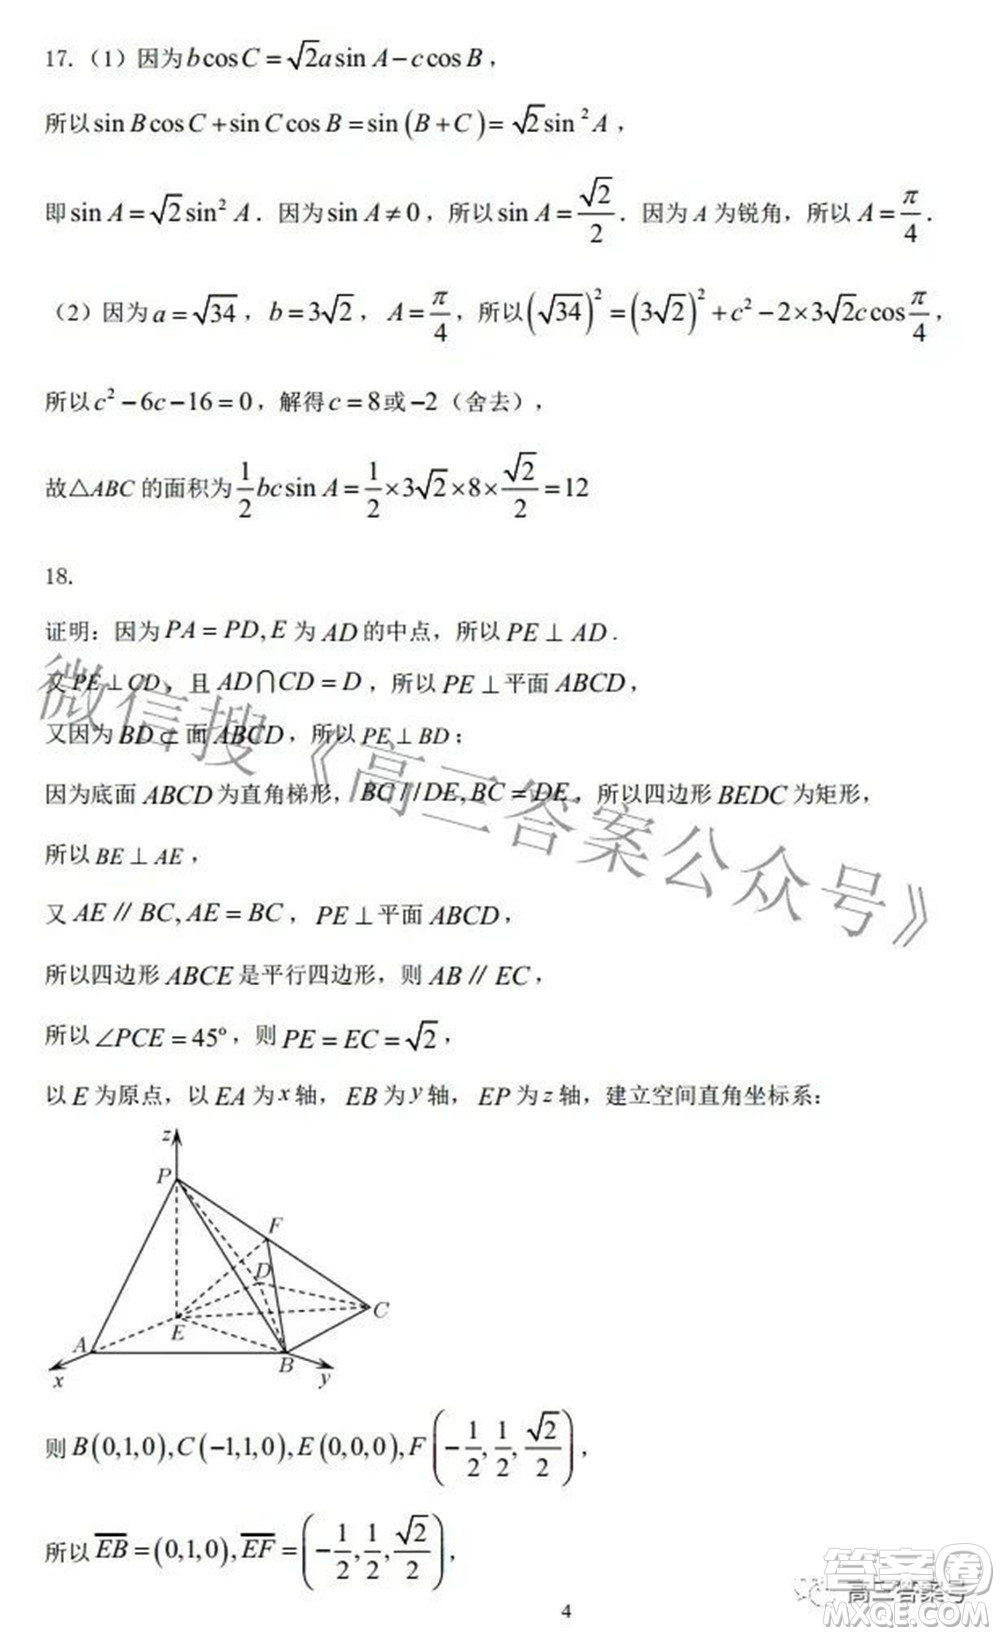 17.（1）因为 b cos C = √2 a sin A − c cos B，
所以 sin B cos C + sin C cos B = sin (B + C) = √2 sin² A，
即 sin A = √2 sin² A．因为 sin A ≠ 0，所以 sin A = √2/2．因为 A 为锐角，所以 A = π/4．
（2）因为 a = √34，b = 3√2，A = π/4，所以 (√34)² = (3√2)² + c² − 2×3√2 c cos π/4，
所以 c² − 6c − 16 = 0，解得 c = 8 或 −2（舍去），
故△ABC 的面积为 1/2 bc sin A = 1/2 × 3√2 × 8 × √2/2 = 12
18.
证明：因为 PA = PD, E 为 AD 的中点，所以 PE ⊥ AD．
又 PE ⊥ CD，且 AD∩CD = D，所以 PE ⊥ 平面 ABCD，
又因为 BD ⊂ 面 ABCD，所以 PE ⊥ BD；
因为底面 ABCD 为直角梯形，BC // DE, BC = DE，所以四边形 BEDC 为矩形，
所以 BE ⊥ AE，
又 AE // BC, AE = BC，PE ⊥ 平面 ABCD，
所以四边形 ABCE 是平行四边形，则 AB // EC，
所以 ∠PCE = 45°，则 PE = EC = √2，
以 E 为原点，以 EA 为 x 轴，EB 为 y 轴，EP 为 z 轴，建立空间直角坐标系：
z
P
F
D
C
E
A
B
x
y
则 B(0,1,0), C(−1,1,0), E(0,0,0), F(−1/2, 1/2, √2/2)，
所以 EB = (0,1,0), EF = (−1/2, 1/2, √2/2)，
4
微信搜《高三答案公众号》
高三答案号
答案圈
MXQE.COM